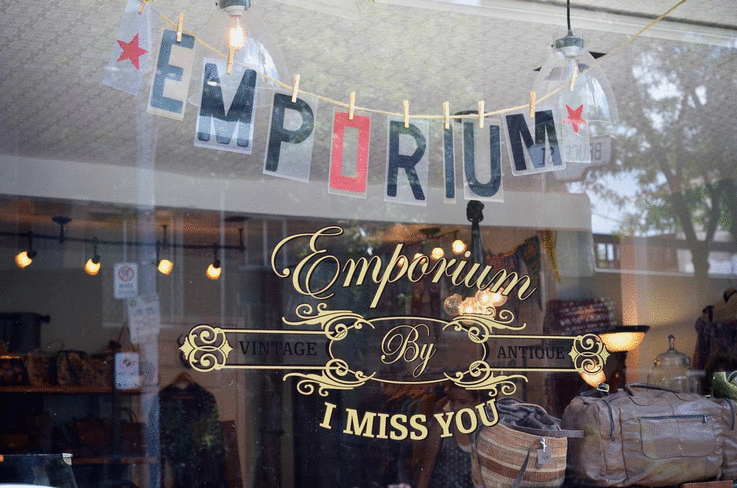 EMPORIUM
Emporium
VINTAGE By ANTIQUE
I MISS YOU